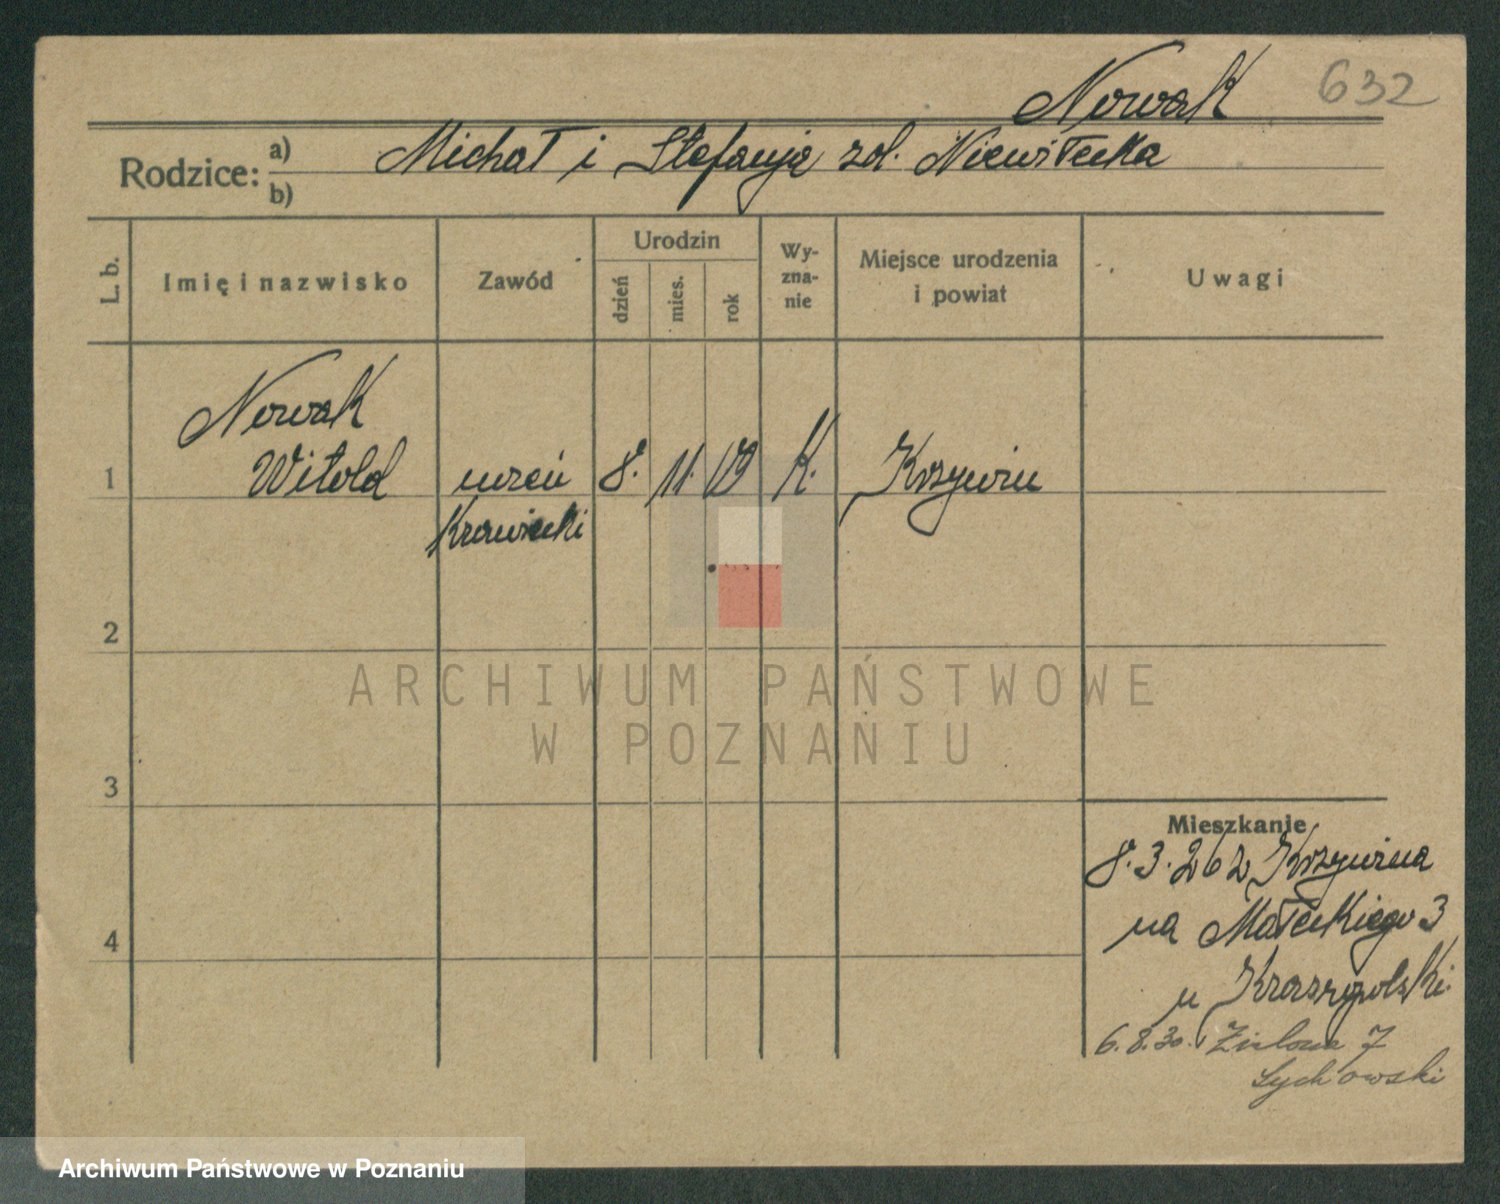 Nowak 632
Rodzice: a) Michał i Stefanja zd. Niewitecka
b)
L. b. Imię i nazwisko Zawód Urodzin dzień mies. rok Wy-zna-nie Miejsce urodzenia i powiat Uwagi
Nowak
1 Witold uczeń 8. 11. 19 K. Krzywiń
Krawiecki
2
ARCHIWUM PAŃSTWOWE
W POZNANIU
3
Mieszkanie
8.3.26 z Krzywinia
na Małeckiego 3
4
u
6.8.30. Zielona 7
Lychowski
Archiwum Państwowe w Poznaniu